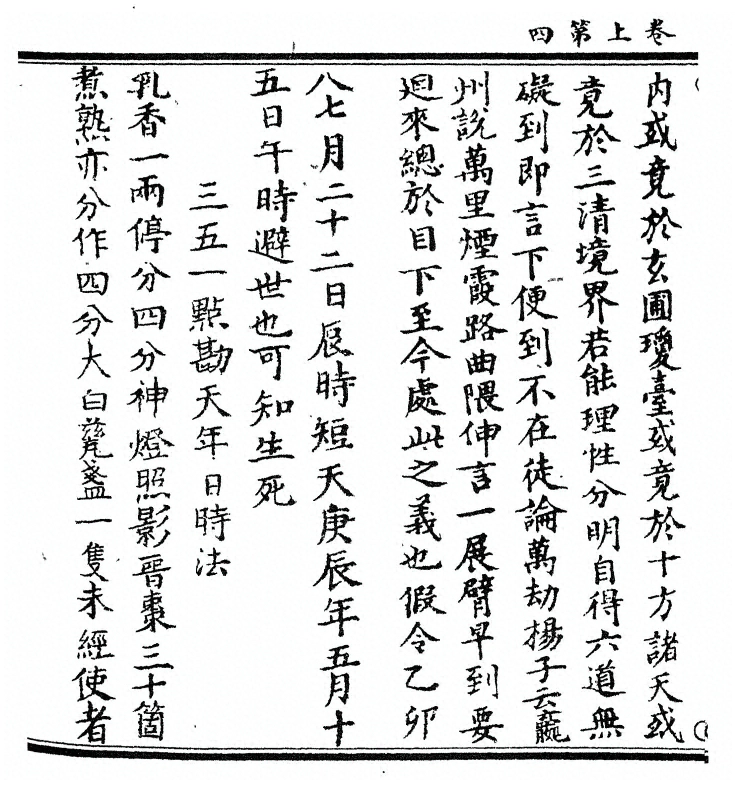 卷上第四
内或竟於玄圃瓊臺或竟於十方諸天或
竟於三清境界若能理性分明自得六道無
礙到即言下便到不在徒論萬劫楊子云
州說萬里煙霞路曲隈伸言一展臂早到要
迴來總於目下至今處此之義也假令乙卯
八七月二十二日辰時短天庚辰年五月十
五日午時避世也可知生死
三五一點勘天年日時法
乳香一兩停分四分神燈照影晉棗三十箇
煮熟亦分作四分大白甆盞一隻未經使者